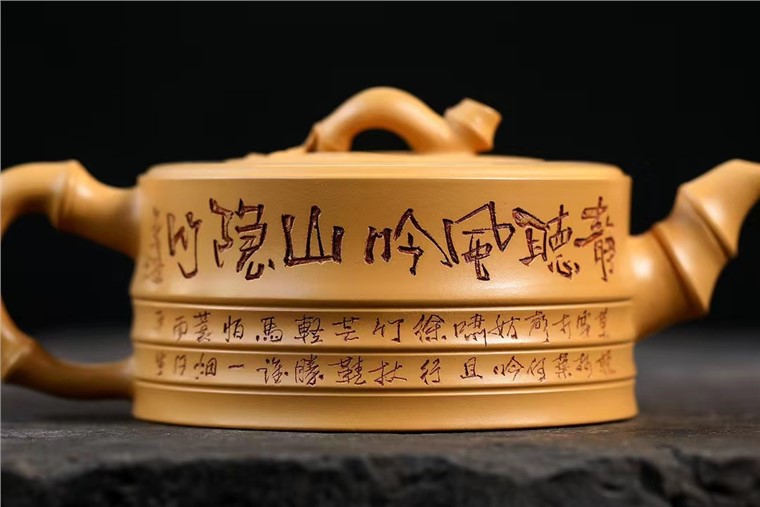 靜聽風吟山隐竹
莫聽穿林打葉聲何妨吟嘯且徐行竹杖芒鞋輕勝馬誰怕一蓑烟雨任平生